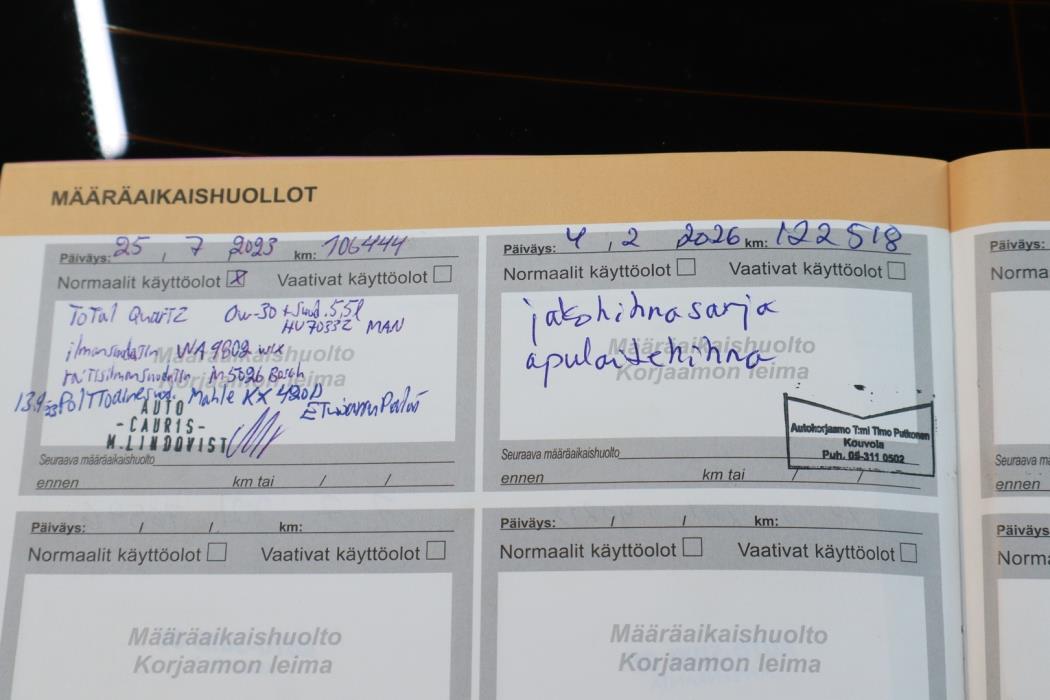 MÄÄRÄAIKAISHUOLLOT
Päiväys: 25 / 7 2023 km: 106444
Normaalit käyttöolot X Vaativat käyttöolot
Total Quartz 0w-30 + Suod. 5,5l
HU7033Z MAN
WA9802 WIX
M5026 Bosch
Määräaikaishuolto
Korjaamon leima
13.9-23 Mahle KX
AUTO
-CAURIS-
M.LINDQVIST
Seuraava määräaikaishuolto
ennen km tai / /
Päiväys: 4 / 2 2026 km: 122518
Normaalit käyttöolot Vaativat käyttöolot
jakohihnasarja
apulaitehihna
Määräaikaishuolto
Korjaamon leima
Autokorjaamo T:mi Timo Putkonen
Kouvola
Puh. 05-311 0502
Seuraava määräaikaishuolto
ennen km tai / /
Päiväys: / / km:
Normaalit käyttöolot Vaativat käyttöolot
Määräaikaishuolto
Korjaamon leima
Päiväys: / / km:
Normaalit käyttöolot Vaativat käyttöolot
Määräaikaishuolto
Korjaamon leima
Päiväys:
Norma
Seuraava mä
ennen
Päiväys
Norm